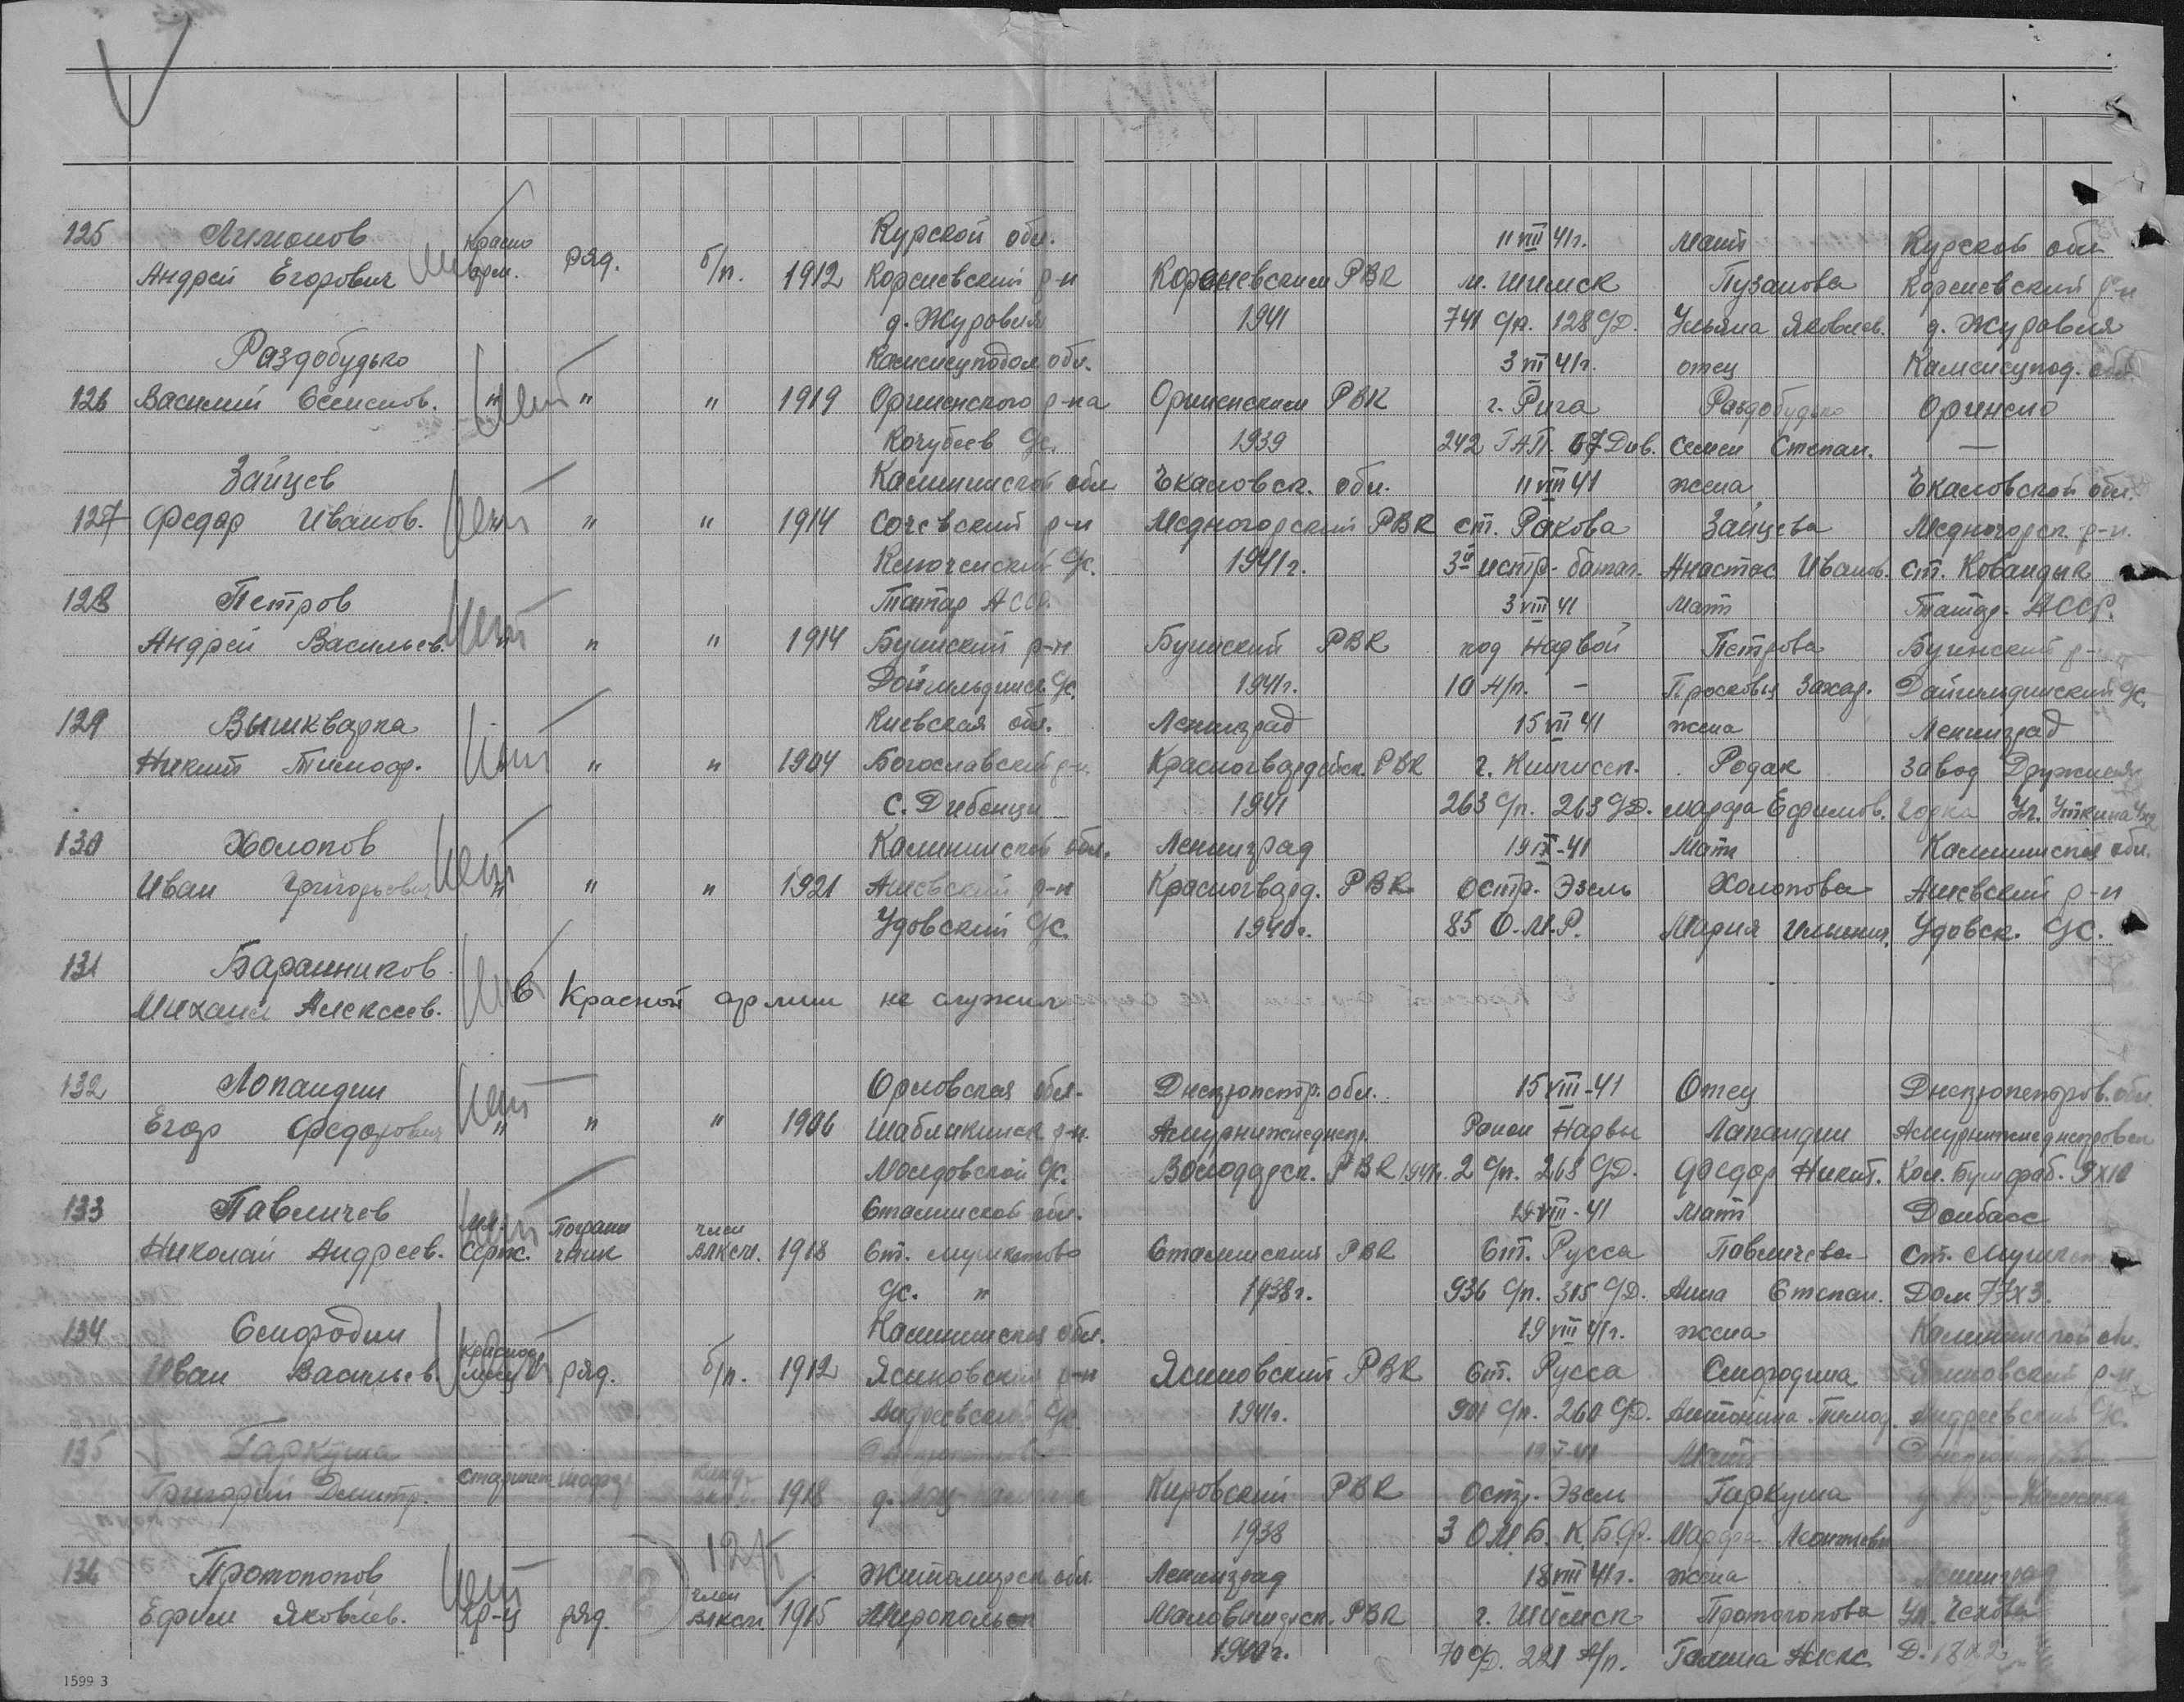 125 Лимонов Красно Курской обл. 11 VIII 41г. мать Курской обл
Андрей Егорович арм. ряд. б/п. 1912 Кореневский р-н Кореневским РВК м. Шимск Пузанова Кореневский р-н
д. Журовля 1941 741 с/п. 128 сД. Ульяна Яковлев. д. Журовля
Раздобудько Каменецподол. обл. 3 VII 41г. отец Каменецпод. обл.
126 Василий Семенов. " " " 1919 Орининского р-на Орининским РВК г. Рига Раздобудько Оринино
Кочубеев с/с. 1939 242 ГАП. 67 Див. Семен Степан. —
Зайцев Калининской обл Чкаловск. обл. 11 VIII 41 жена Чкаловской обл.
127 Федор Иванов. нет " " 1914 Сочевский р-н Медногорский РВК ст. Ракова Зайцева Медногорск. р-н.
Ключенский с/с. 1941г. 3й истр. батал. Анастас Иванов. ст. Ковандык
128 Петров нет Татар АССР. 3 VIII 41 мать Татар. АССР.
Андрей Васильев. " " " 1914 Буинский р-н Буинский РВК под Нарвой Петрова Буинский р-
1941г. 10 А/п. – Прасковья Захар.
129 Вышкварка Киевская обл. Ленинград 15 VII 41 жена Ленинград
Никит Тимоф. нет " " 1904 Богославский р-н. Красногвардейск. РВК г. Кингисеп. Родак завод Дружная
с. Дибенци 1941 263 с/п. 263 сД. Марфа Ефимов. Горка Ул. Уткина
130 Холопов нет Калининской обл. Ленинград 19 IX-41 мать Калининской обл.
Иван Григорьевич " " " 1921 Ашевский р-н Красногвард. РВК остр. Эзель Холопова Ашевский р-н
Удовский с/с. 1940г. 85 О.М.Р. Мария Ильинич. Удовск. с/с.
131 Баранников
Михаил Алексеев. нет В Красной армии не служил
132 Лопандин нет Орловская обл. Днепропетр. обл. 15 VIII-41 Отец Днепропетров. обл.
Егор Федорович " " " 1906 Шаблыкинск р-н. Амурнижнеднепр. Район Нарвы Лапандин Амурнижнеднепровск
Молдовской с/с. Володарск. РВК 1941г. 2 с/п. 268 сД. Федор Никит. Кол. Бум фаб. 9х10
133 Павличев Мл. Погранич член Сталинской обл. 19 VIII-41 мать Донбасс
Николай Андреев. Серж. чник ВЛКСМ. 1918 Ст. Мушкетово Сталинский РВК Ст. Русса Павличева ст. Мушкет
с/с. " 1938г. 936 с/п. 315 сД. Анна Степан. Дом 77х3.
134 Смородин Красно Калининская обл. 19 VIII 41г. жена Калининской обл.
Иван Васильев. ряд. б/п. 1912 Ясиновский р-н Ясиновский РВК Ст. Русса Смородина Ясиновский р-н
Андреевский с/с 1941г. 901 с/п. 260 сД. Антонина Тимоф. Андреевский с/с.
135 Гаркуша 19 X-41 Мать
Григорий Дмитр. Старшина 1918 Кировский РВК остр. Эзель Гаркуша
1938 3 О.М.Б. К.Б.Ф. Марфа Леонтьевн
136 Протопопов нет Житомирск. обл. Ленинград 18 VIII 41г. жена Ленинград
член
Ефим Яковлев. Кр-ц ряд. ВЛКСМ. 1915 Миропольск Маловишерск. РВК г. Шимск Протопопова Ул. Чехова
1940г. 70 сД. 221 А/п. Галина Алекс. Д.
1599 3